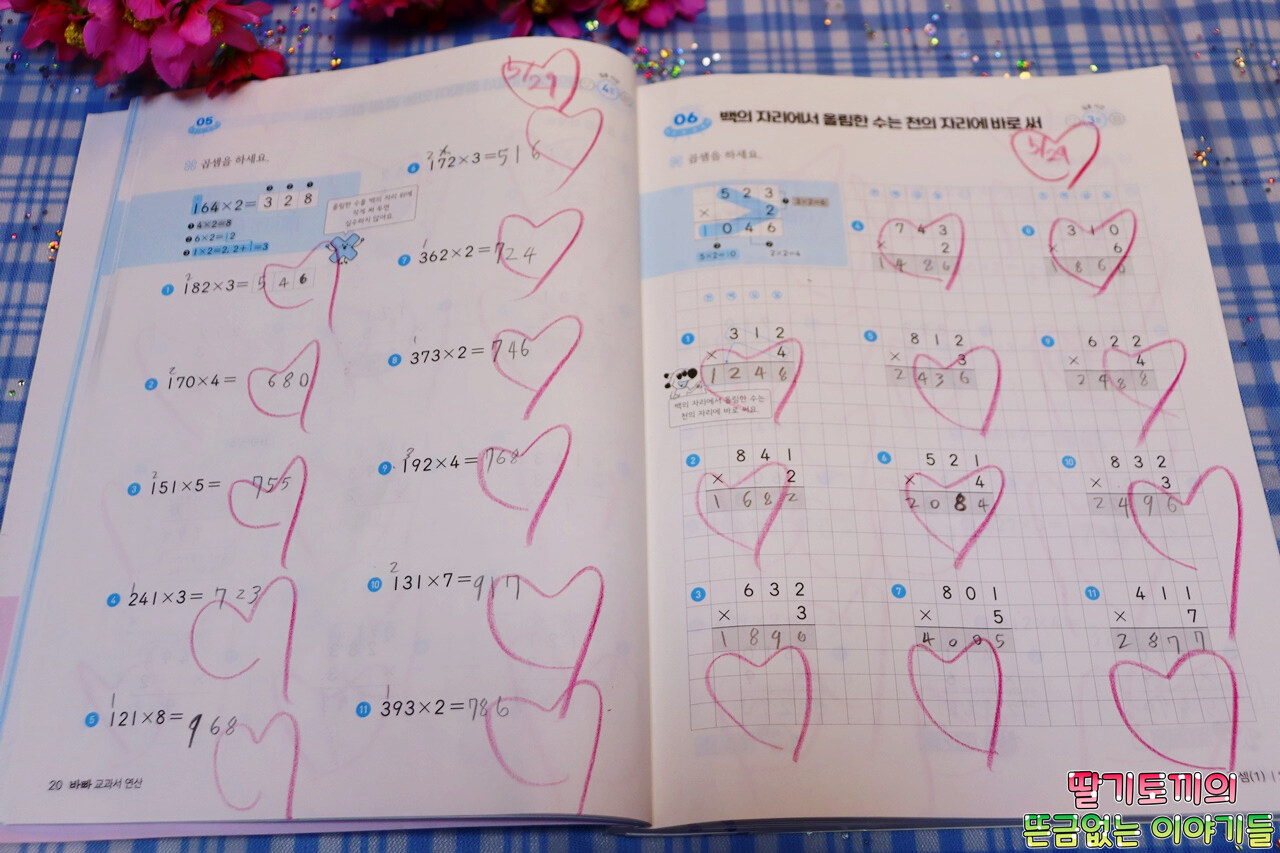 5/29
05
곱셈을 하세요.
164×2=328
❶ 4×2=8
❷ 6×2=12
❸ 1×2=2, 2+1=3
올림한 수를 백의 자리 위에
작게 써 두면
실수하지 않아요.
1 182×3=546
2 170×4= 680
3 151×5= 755
4 241×3= 723
5 121×8= 968
6 172×3=516
7 362×2=724
8 373×2=746
9 192×4=768
10 131×7=917
11 393×2=786
20 바빠 교과서 연산
06 백의 자리에서 올림한 수는 천의 자리에 바로 써
5/29
곱셈을 하세요.
523
× 2
1046
3×2=6
5×2=10
2×2=4
천 백 십 일
1 312
× 4
1248
백의 자리에서 올림한 수는
천의 자리에 바로 써요.
2 841
× 2
1682
3 632
× 3
1896
4 743
× 2
1486
5 812
× 3
2436
6 521
× 4
2084
7 801
× 5
4005
8 310
× 6
1860
9 622
× 4
2488
10 832
× 3
2496
11 411
× 7
2877
셈(1)
딸기토끼의
뜬금없는 이야기들